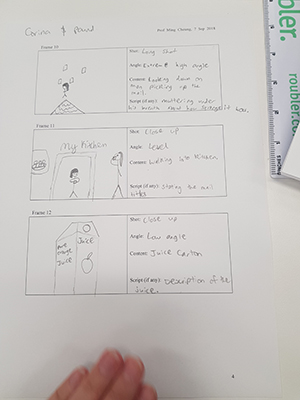 Corina & Paul
Prof Ming Cheung, 7 Sep 2018
Frame 10
Shot: Long Shot
Angle: Extreme high angle
Content: Looking down on
man picking up the
mail.
Script (if any): muttering under
his breath about how
Frame 11
My Kitchen
Shot: Close up
Angle: Level
Content: Walking into Kitchen
Script (if any): the mail
Frame 12
Juice
Juice
Shot: Close up
Angle: Low angle
Content: Juice Carton
Script (if any): Description of the
juice.
4
roubler.
roubler.com